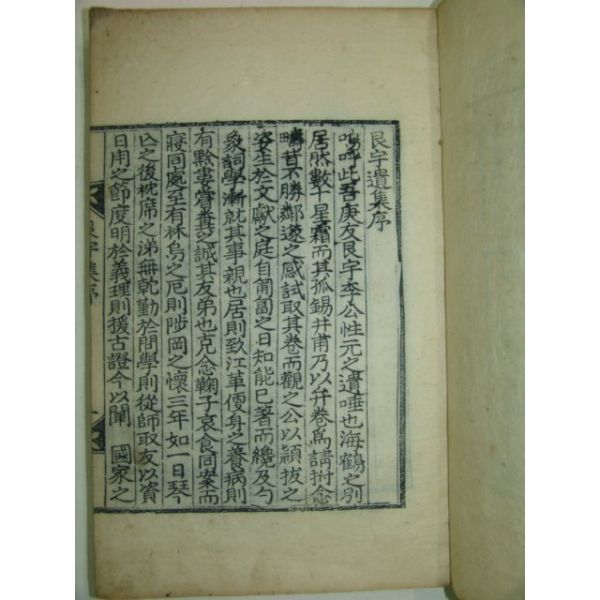 艮宇遺集序
嗚呼此吾庚友艮宇李公性元之遺唾也海鶴之別
居然數十星霜而其孤錫井甫乃以弁卷爲請拊念
疇昔不勝鄰邃之感試取其卷而觀之公以穎拔之
姿生於文獻之庭自匍匐之日知能已著而纔及勺
象詞學漸就其事親也居則致江革便身之養病則
有黔婁嘗糞之誠其友弟也克念鞠子哀食同案而
寢同處至有秌烏之厄則陟岡之懷三年如一日琴
亡之後枕席之涕無乾勤於問學則從師取友以資
日用之節度明於義理則援古證今以闡 國家之
艮宇集序
一